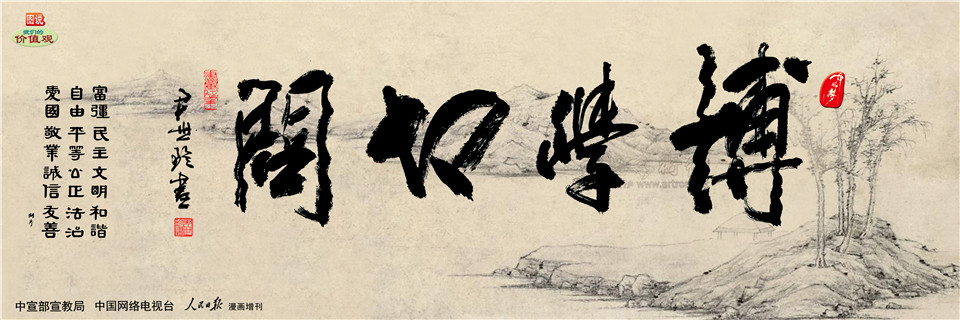 图说
我们的
价值观
博學切問
富強民主文明和諧
自由平等公正法治
愛國敬業誠信友善
中宣部宣教局 中国网络电视台 人民日报 漫画增刊
www.artron